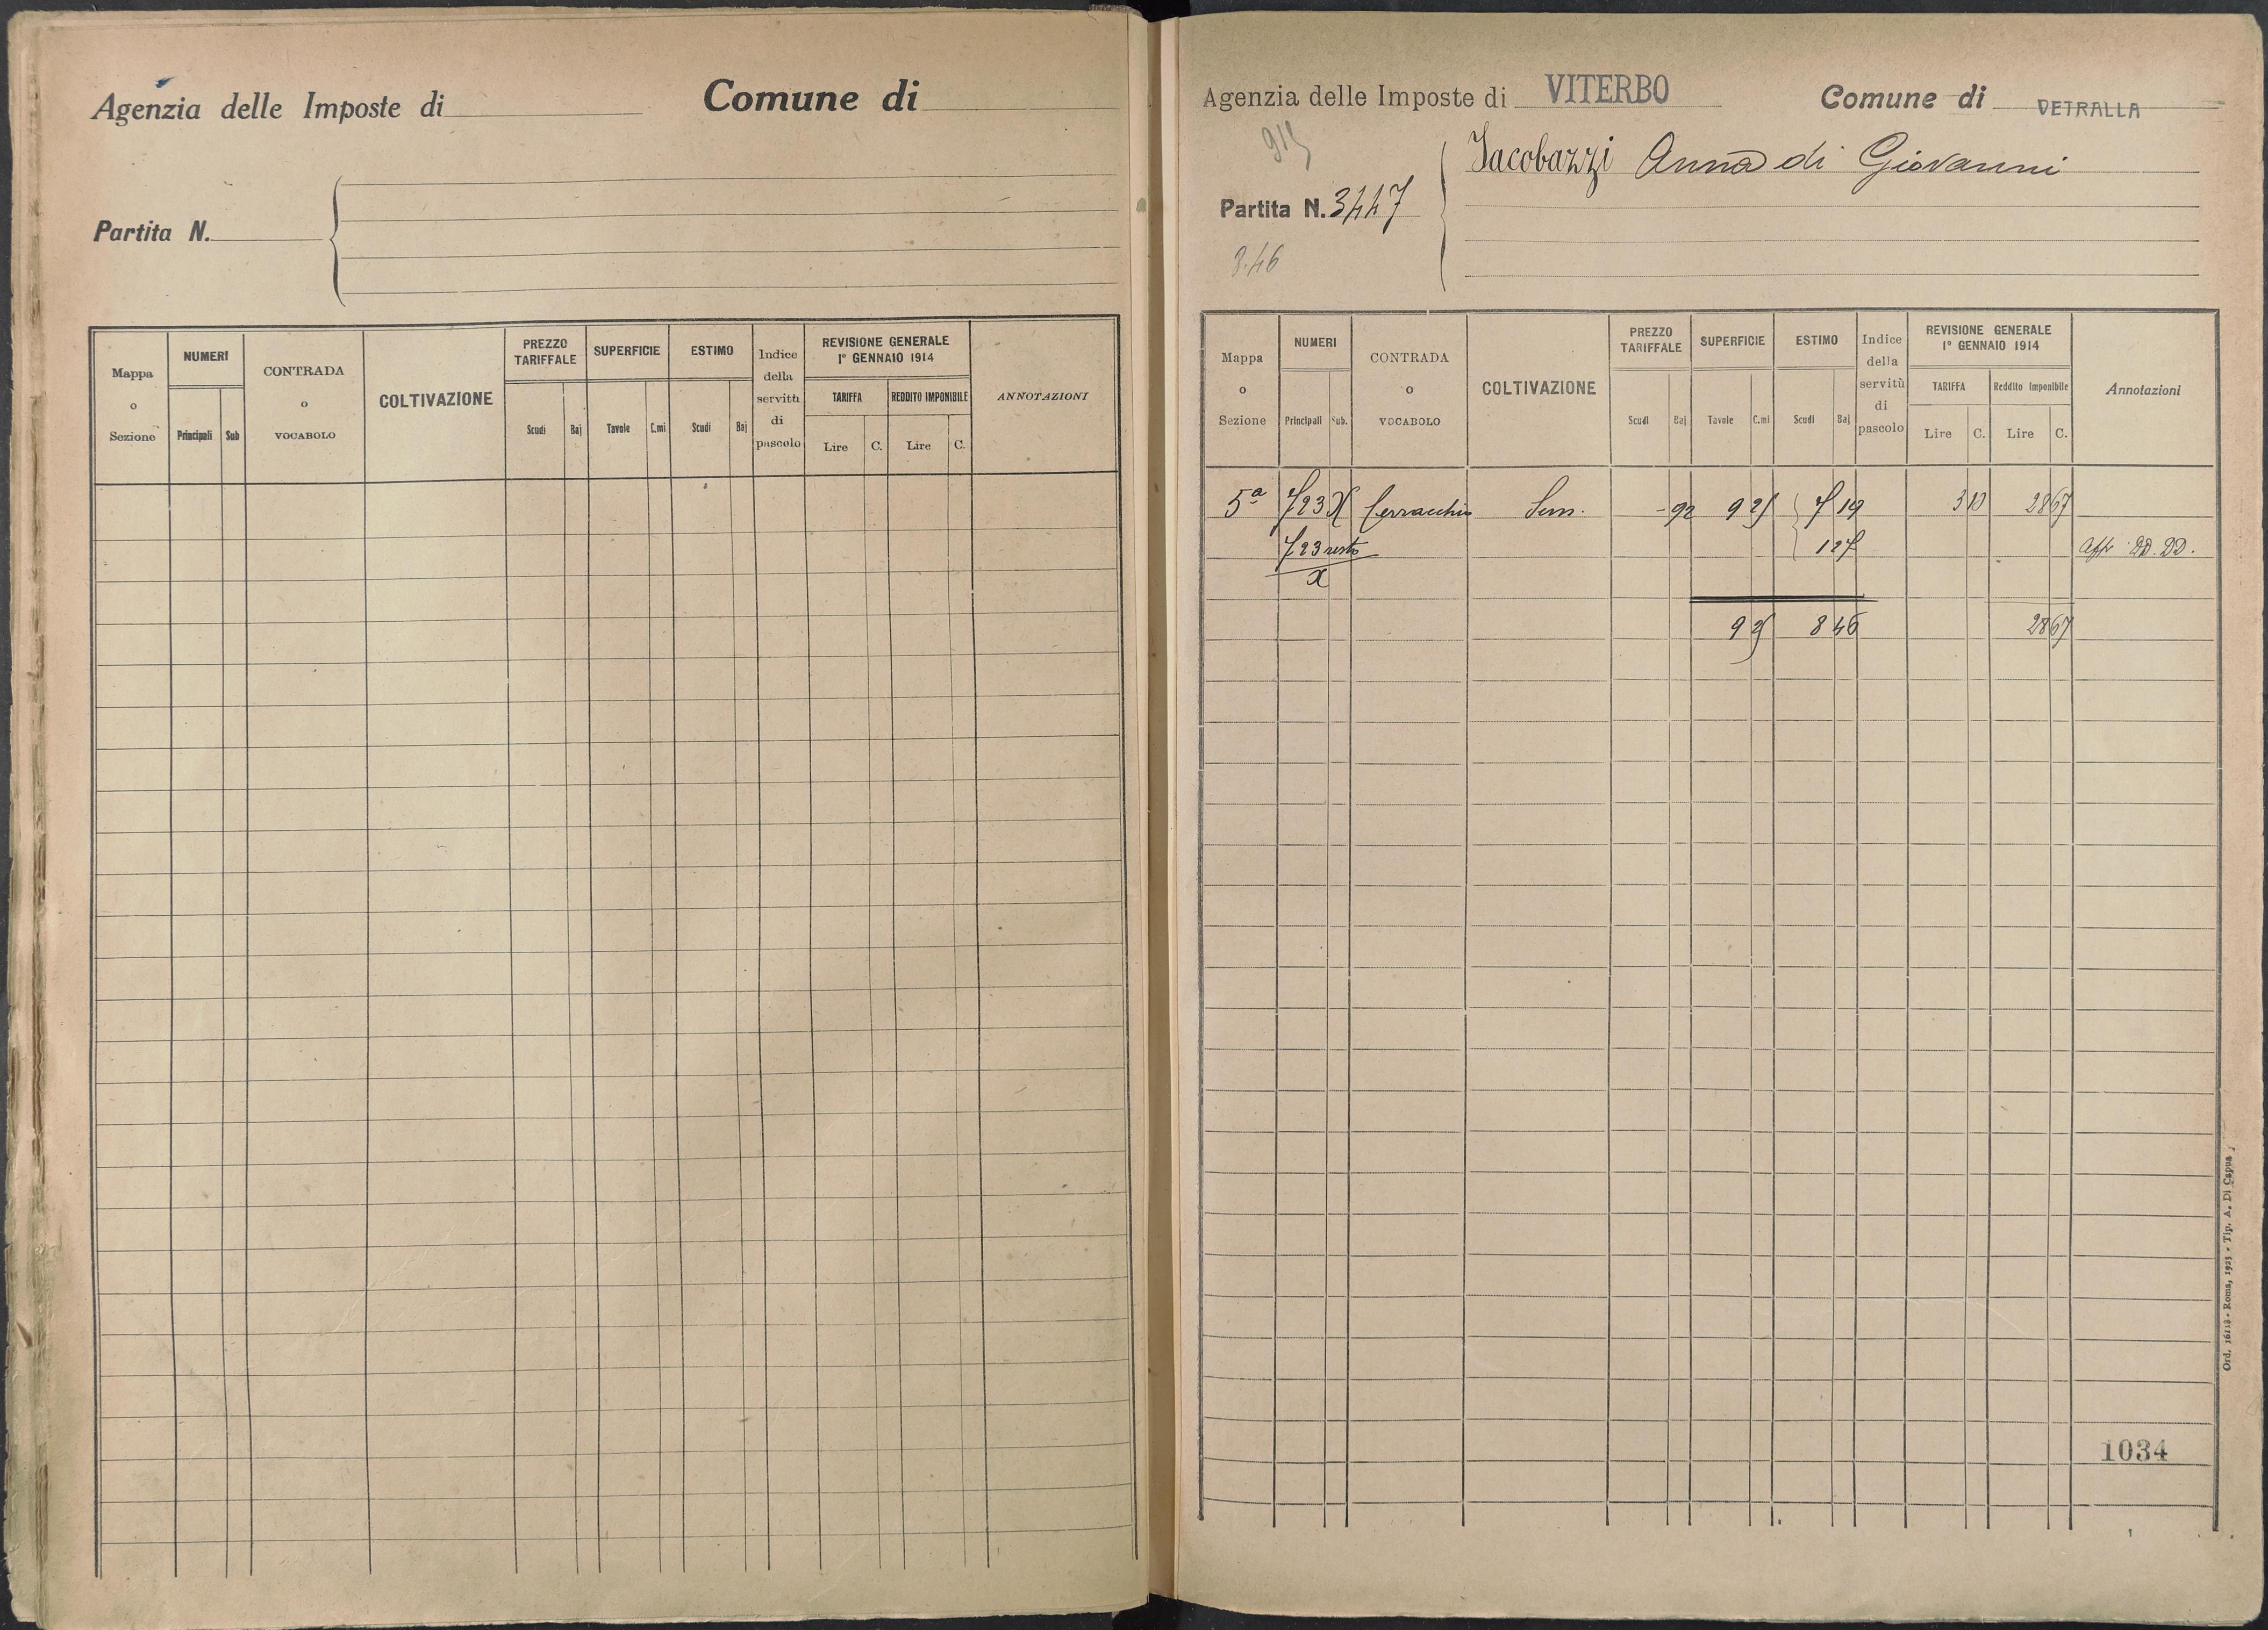 Agenzia delle Imposte di
Comune di
Partita N.
Mappa o Sezione
NUMERI
Principali Sub
CONTRADA o VOCABOLO
COLTIVAZIONE
PREZZO TARIFFALE
Scudi Baj
SUPERFICIE
Tavole C.mi
ESTIMO
Scudi Baj
Indice della servitù di pascolo
REVISIONE GENERALE
1° GENNAIO 1914
TARIFFA
Lire C.
REDDITO IMPONIBILE
Lire C.
ANNOTAZIONI
Agenzia delle Imposte di VITERBO
Comune di VETRALLA
Jacobazzi Anna di Giovanni
Partita N. 3447
8.46
Mappa o Sezione
NUMERI
Principali Sub.
CONTRADA o VOCABOLO
COLTIVAZIONE
PREZZO TARIFFALE
Scudi Baj
SUPERFICIE
Tavole C.mi
ESTIMO
Scudi Baj
Indice della servitù di pascolo
REVISIONE GENERALE
1° GENNAIO 1914
TARIFFA
Lire C.
Reddito Imponibile
Lire C.
Annotazioni
5ª 723 X Cerracchio Sem. - 92 9 25 7 19 3 10 28 67
723 resto 1 27
x
9 25 8 46 28 67
1034
Ord. 16118 - Roma, 1923 - Tip. A. Di Capua